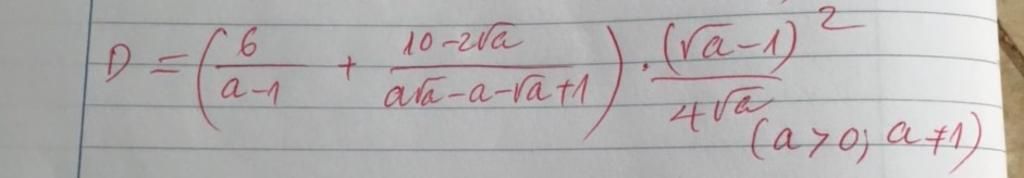 D = (6/(a-1) + (10-2√a)/(a√a-a-√a+1)) . (√a-1)²/(4√a)
(a>0; a≠1)